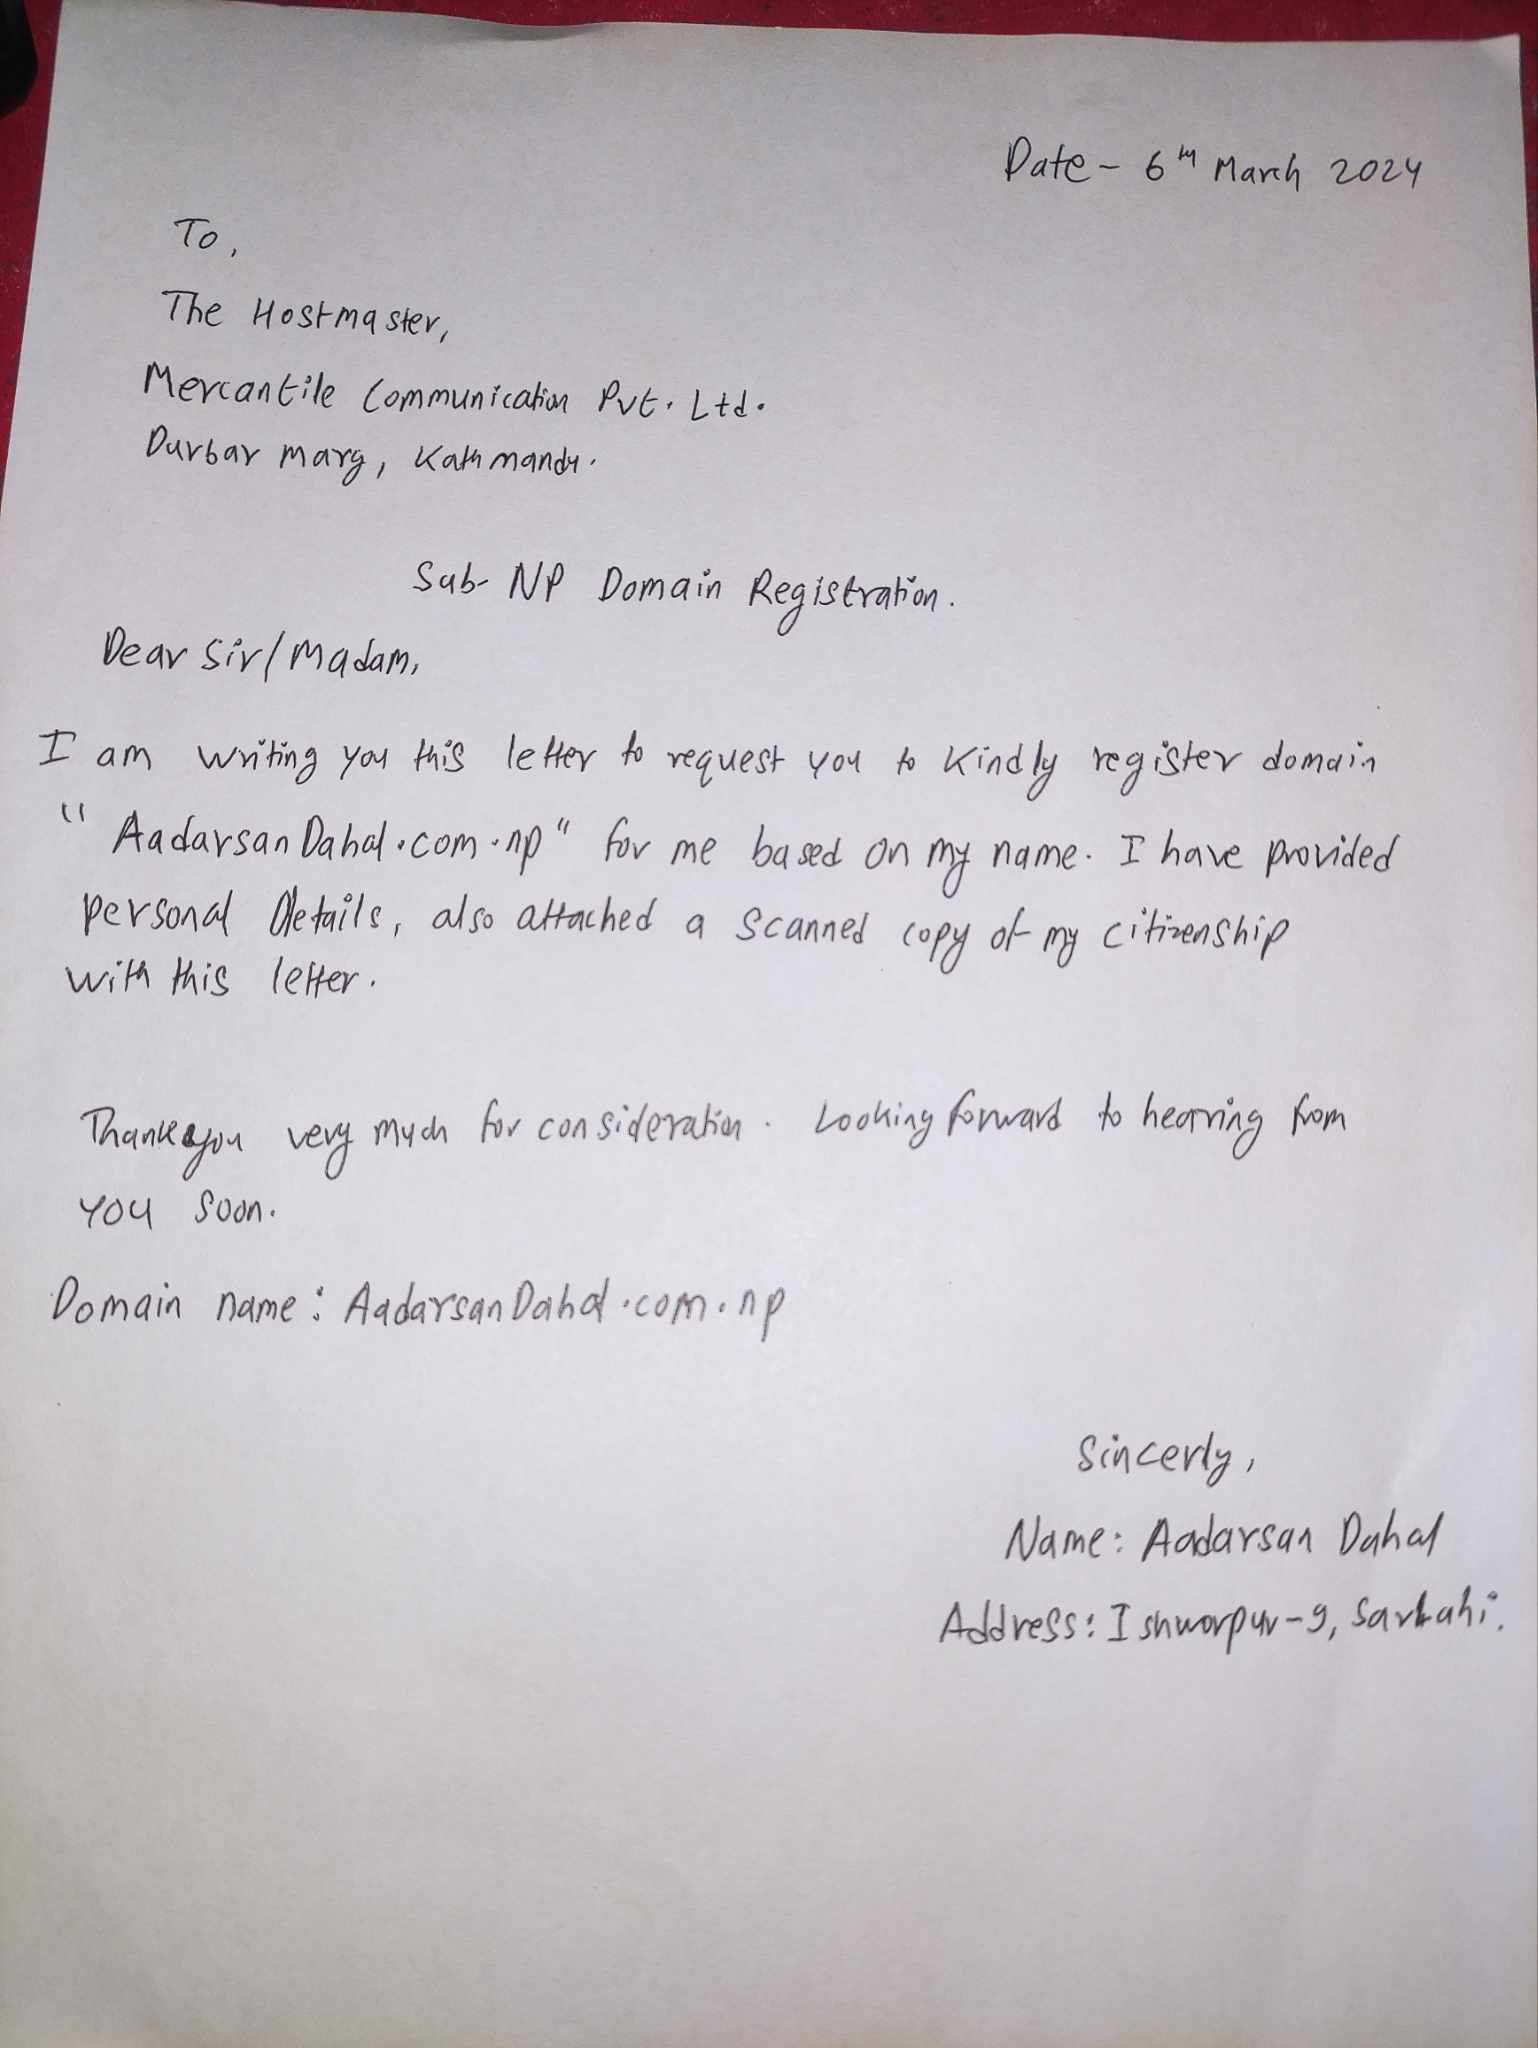 Date - 6th March 2024
To,
The Hostmaster,
Mercantile Communication Pvt. Ltd.
Durbar Marg, Kathmandu.
Sub- NP Domain Registration.
Dear Sir/Madam,
I am writing you this letter to request you to kindly register domain
"AadarsanDahal.com.np" for me based on my name. I have provided
personal Details, also attached a scanned copy of my citizenship
with this letter.
Thank you very much for consideration. Looking forward to hearing from
you soon.
Domain name: AadarsanDahal.com.np
Sincerly,
Name: Aadarsan Dahal
Address: Ishworpur-9, Sarlahi.